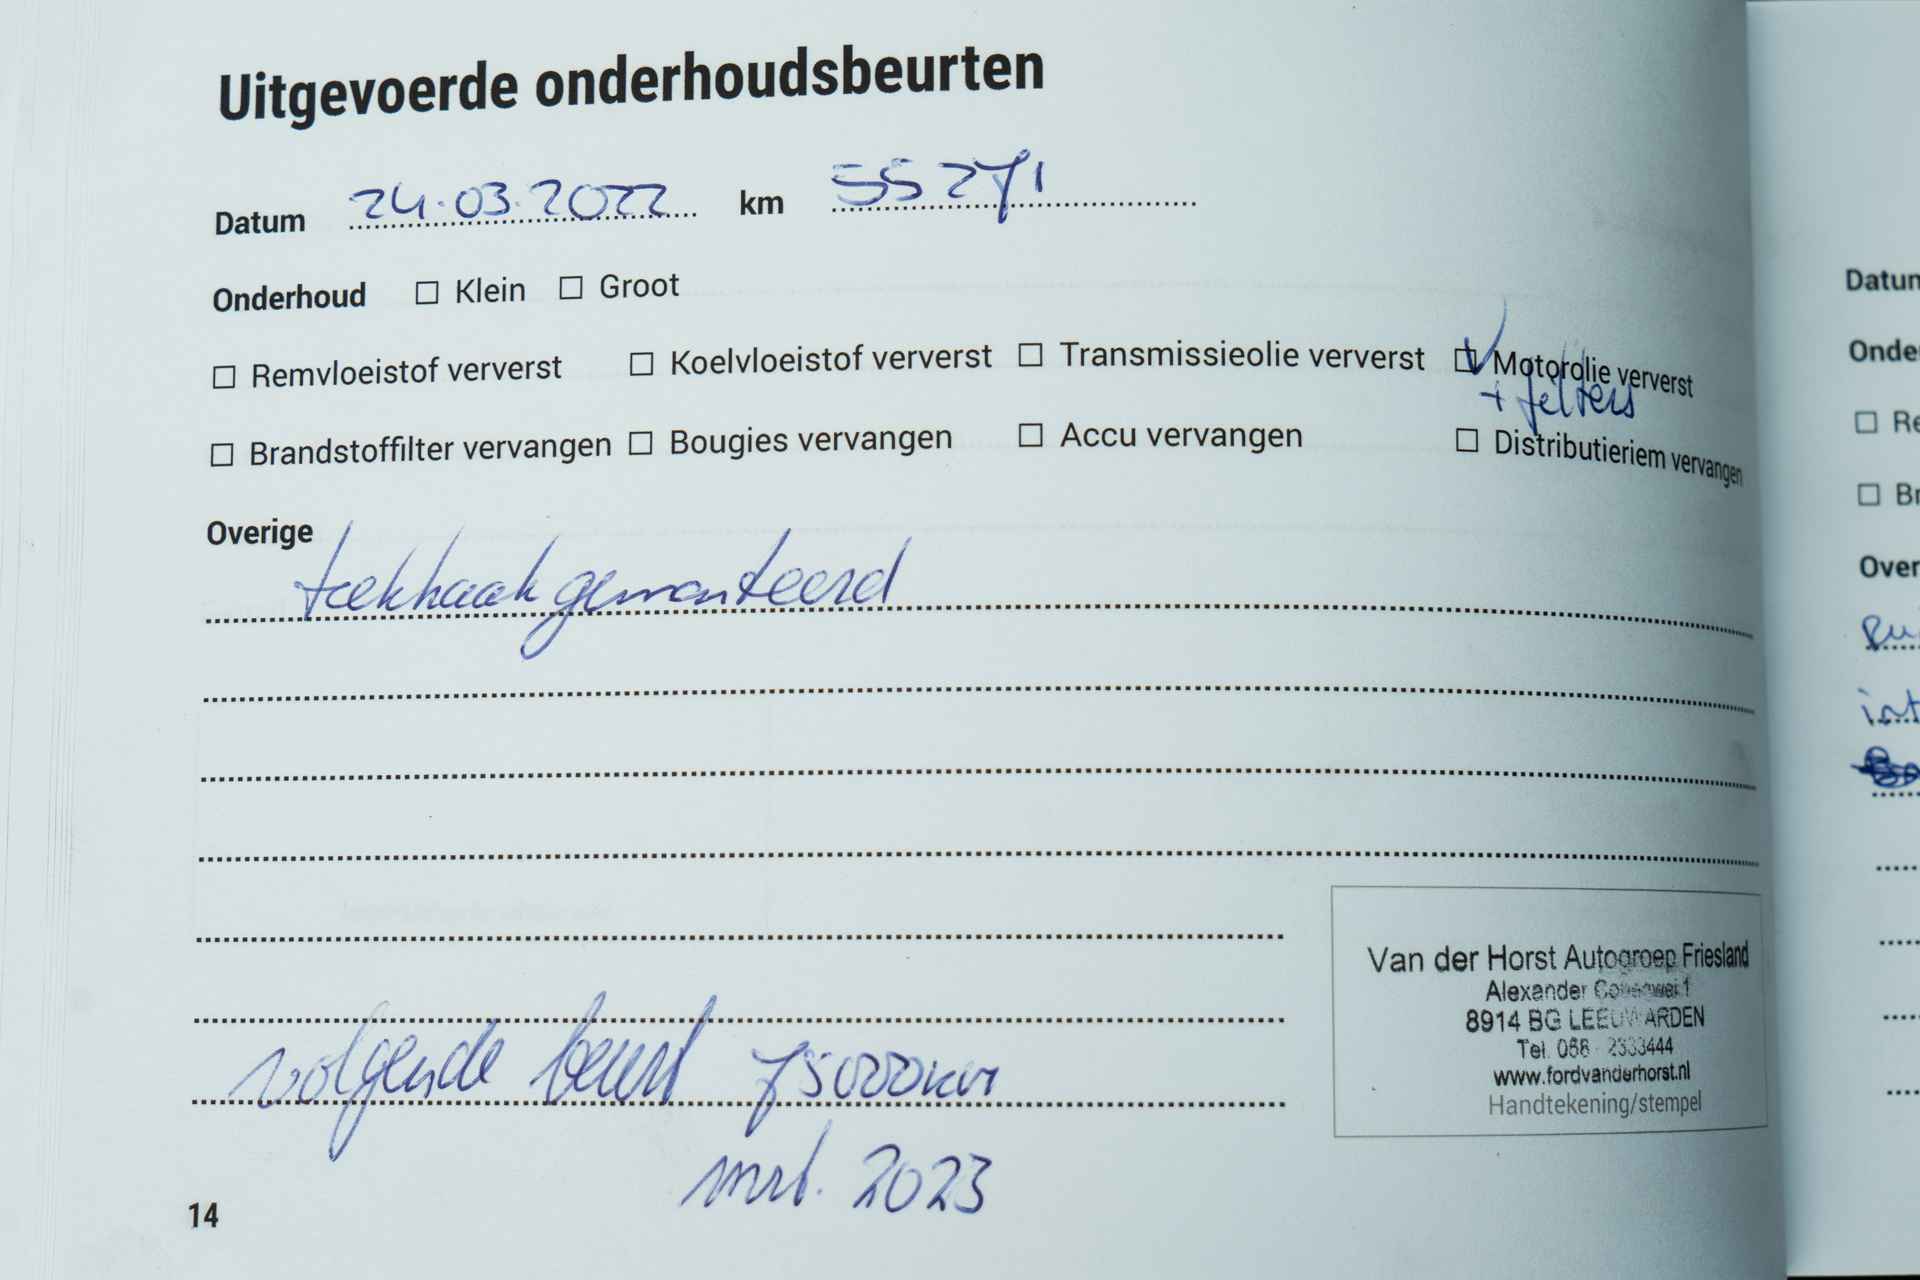 Uitgevoerde onderhoudsbeurten
Datum 24.03.2022 km 55271
Onderhoud ☐ Klein ☐ Groot
☐ Remvloeistof ververst ☐ Koelvloeistof ververst ☐ Transmissieolie ververst ☑ Motorolie ververst
+ filters
☐ Brandstoffilter vervangen ☐ Bougies vervangen ☐ Accu vervangen ☐ Distributieriem vervangen
Overige
trekhaak gemonteerd
Van der Horst Autogroep Friesland
Alexander 1
8914 BG LEEUWARDEN
Tel. 058 - 2333444
www.fordvanderhorst.nl
Handtekening/stempel
volgende beurt 75000km
mrt. 2023
14
Datum
Onde
☐ Re
☐ Br
Over
int